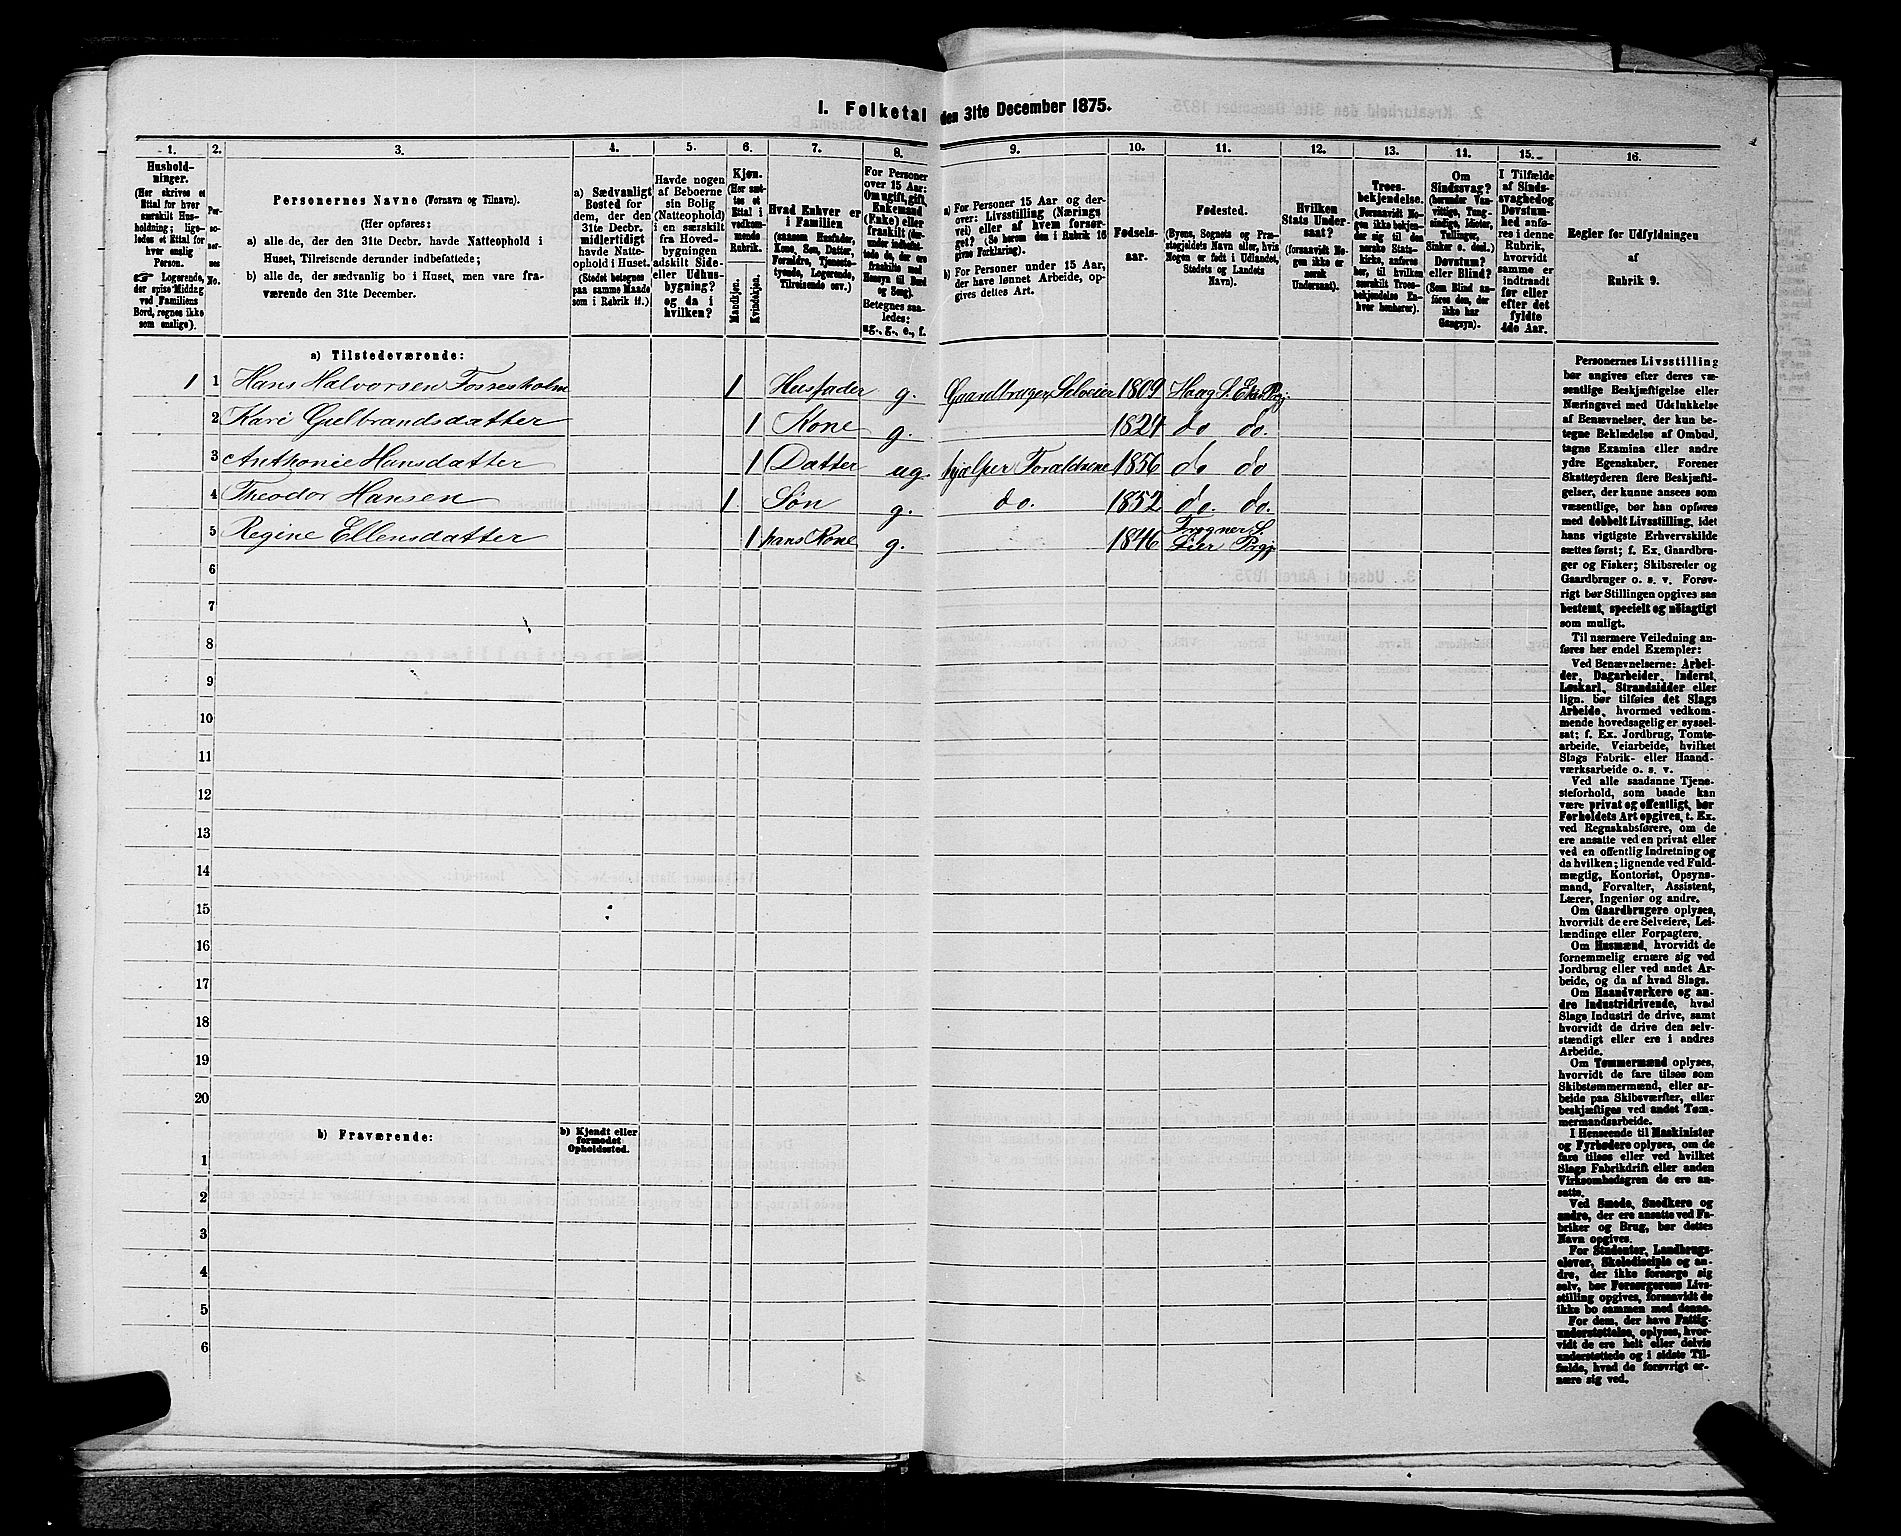 I. Folketal den 31te December 1875.
1. 2. 3. 4. 5. 6. 7. 8. 9. 10. 11. 12. 13. 14. 15. 16.
Husholdninger.
(Her skrives et
Ettal for hver
særskilt Husholdning;
ligeledes et Ettal for
hver enslig
Person.
☞ Logerende,
der spise Middag
ved Familiens
Bord, regnes ikke
som enslige).
Personernes No.
Personernes Navne (Fornavn og Tilnavn).
(Her opføres:
a) alle de, der den 31te Decbr. havde Natteophold i
Huset, Tilreisende derunder indbefattede;
b) alle de, der sædvanlig bo i Huset, men vare fraværende
den 31te December.
a) Sædvanligt
Bosted for
dem, der den
31te Decbr.
midlertidigt
havde Natteophold
i Huset.
(Stedet betegnes
paa samme Maade
som i Rubrik 11.)
Havde nogen
af Beboerne
sin Bolig
(Natteophold)
i en særskilt
fra Hovedbygningen
adskilt Side-
eller Udhusbygning?
og da i
hvilken?
Kjøn.
(Her sættes
et
Ettal i
vedkommende
Rubrik.
Mandkjøn.
Kvindekjøn.
Hvad Enhver er
i Familien
(saasom Husfader,
Kone, Søn, Datter,
Forældre, Tjenestetyende,
Logerende,
Tilreisende osv.)
For Personer
over 15 Aar:
Om ugift, gift,
Enkemand
(Enke) eller
fraskilt
Betegnes saaledes:
ug., g., e., f.
a) For Personer 15 Aar og derover:
Livsstilling (Næringsvei)
eller af hvem forsørget?
(Se herom den i Rubrik 16
givne Forklaring).
b) For Personer under 15 Aar,
der have lønnet Arbeide, opgives
dettes Art.
Fødselsaar.
Fødested.
(Byens, Sognets og Præstegjeldets
Navn eller, hvis
Nogen er født i Udlandet,
Stedets og Landets
Navn).
Hvilken
Stats Undersaat?
(forsaavidt Nogen
ikke er
norsk
Undersaat).
Troesbekjendelse.
(Forsaavidt Nogen
ikke bekjender
sig til den
norske Statskirke,
anføres
her, til hvilken
særskilt Troesbekjendelse
Enhver henhører).
Om
Sindssvag?
(herunder Vanvittige,
Tungsindige,
Idioter,
Tullinger,
Sinker o. desl.).
Døvstum?
eller Blind?
(Som Blind anføres
den, der
ikke har
Gangsyn).
I Tilfælde
af Sindssvaghed
og
Døvstumhed
anføres
i denne
Rubrik,
hvorvidt
samme er
indtraadt
før eller
efter det
fyldte
4de Aar.
Regler for Udfyldningen
af
Rubrik 9.
a) Tilstedeværende:
1 1 Hans Halvorsen Fossesholm 1 Husfader g. Gaardbruger, Selveier 1809 Haug S. Eker Prgj.
2 Kari Gulbrandsdatter 1 Kone g. 1824 do do.
3 Anthonie Hansdatter 1 Datter ug. hjælper Forældrene 1856 do do
4 Theodor Hansen 1 Søn g. do. 1852 do. do.
5 Regine Ellensdatter 1 hans Kone g. 1846 Frogner S. Lier Prgj.
6
7
8
9
10
11
12
13
14
15
16
17
18
19
20
b) Fraværende:
b) Kjendt eller
formodet
Opholdssted.
1
2
3
4
5
6
Personernes Livsstilling
bør angives efter deres væsentlige
Beskjæftigelse eller
Næringsvei med Udelukkelse
af Benævnelser, der kun betegne
Beklædelse af Ombud,
tagne Examina eller andre
ydre Egenskaber. Forener
Skatteyderen flere Beskjæftigelser,
der kunne ansees som
væsentlige, bør han opføres
med dobbelt Livsstilling, idet
hans vigtigste Erhvervskilde
sættes først; f. Ex. Gaardbruger
og Fisker; Skibsreder og
Gaardbruger o. s. v. Forøvrigt
bør Stillingen opgives saa
bestemt, specielt og nöiagtigt
som muligt.
Til nærmere Veiledning anføres
her endel Exempler:
Ved Benævnelserne: Arbeider,
Dagarbeider, Inderst,
Løskarl, Strandsidder eller
lign. bør tilføies det Slags
Arbeide, hvormed vedkommende
hovedsagelig er sysselsat;
f. Ex. Jordbrug, Tomtearbeide,
Veiarbeide, hvilket
Slags Fabrik- eller Haandværksarbeide
o. s. v.
Ved alle saadanne Tjenesteforhold,
som baade kan
være privat og offentligt, bør
Forholdets Art opgives, t. Ex.
ved Regnskabsførere, om de
ere ansatte ved en privat eller
ved en offentlig Indretning og
da hvilken; lignende ved Fuldmægtig,
Kontorist, Opsynsmand,
Forvalter, Assistent,
Lærer, Ingeniør og andre.
Om Gaardbrugere oplyses,
hvorvidt de ere Selveiere, Leilændinge
eller Forpagtere.
Om Husmænd, hvorvidt de
fornemmelig ernære sig ved
Jordbrug eller ved andet Arbeide,
og da af hvad Slags.
Om Haandværkere og andre
Industridrivende, hvad
Slags Industri de drive, samt
hvorvidt de drive den selvstændigt
eller ere i andres
Arbeide.
Om Tømmermænd oplyses,
hvorvidt de fare tilsøs som
Skibstømmermænd, eller arbeide
paa Skibsværfter, eller
beskjæftiges ved andet Tømmermandsarbeide.
I Henseende til Maskinister
og Fyrbødere oplyses, om de
fare tilsøs eller ved hvilket
Slags Fabrikdrift eller anden
Virksomhedsgren de ere ansatte.
Ved Smede, Snedkere og
andre, der ere ansatte ved Fabriker
og Brug, bør dettes
Navn opgives.
For Studenter, Landbrugselever,
Skoledisciple og andre,
der ikke forsørge sig
selv, bør Forsørgerens Livsstilling
opgives, forsaavidt de
ikke bo sammen med denne.
For dem, der have Fattigunderstøttelse,
oplyses, hvorvidt
de ere helt eller delvis
understøttede og i sidste Tilfælde,
hvad de forøvrigt ernære
sig ved.